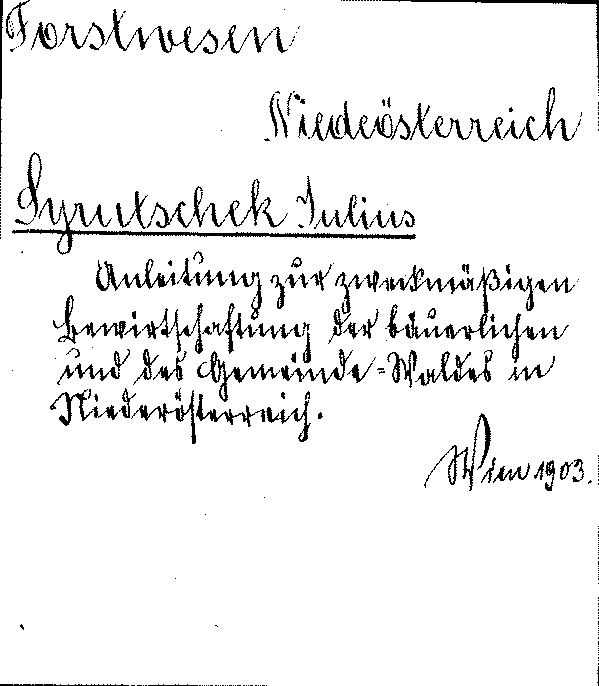 Forstwesen
Niedeösterreich
Syrutschek Julius
Anleitung zur zweckmäßigen
Bewirtschaftung der bäuerlichen
und des Gemeinde-Waldes in
Niederösterreich.
Wien 1903.